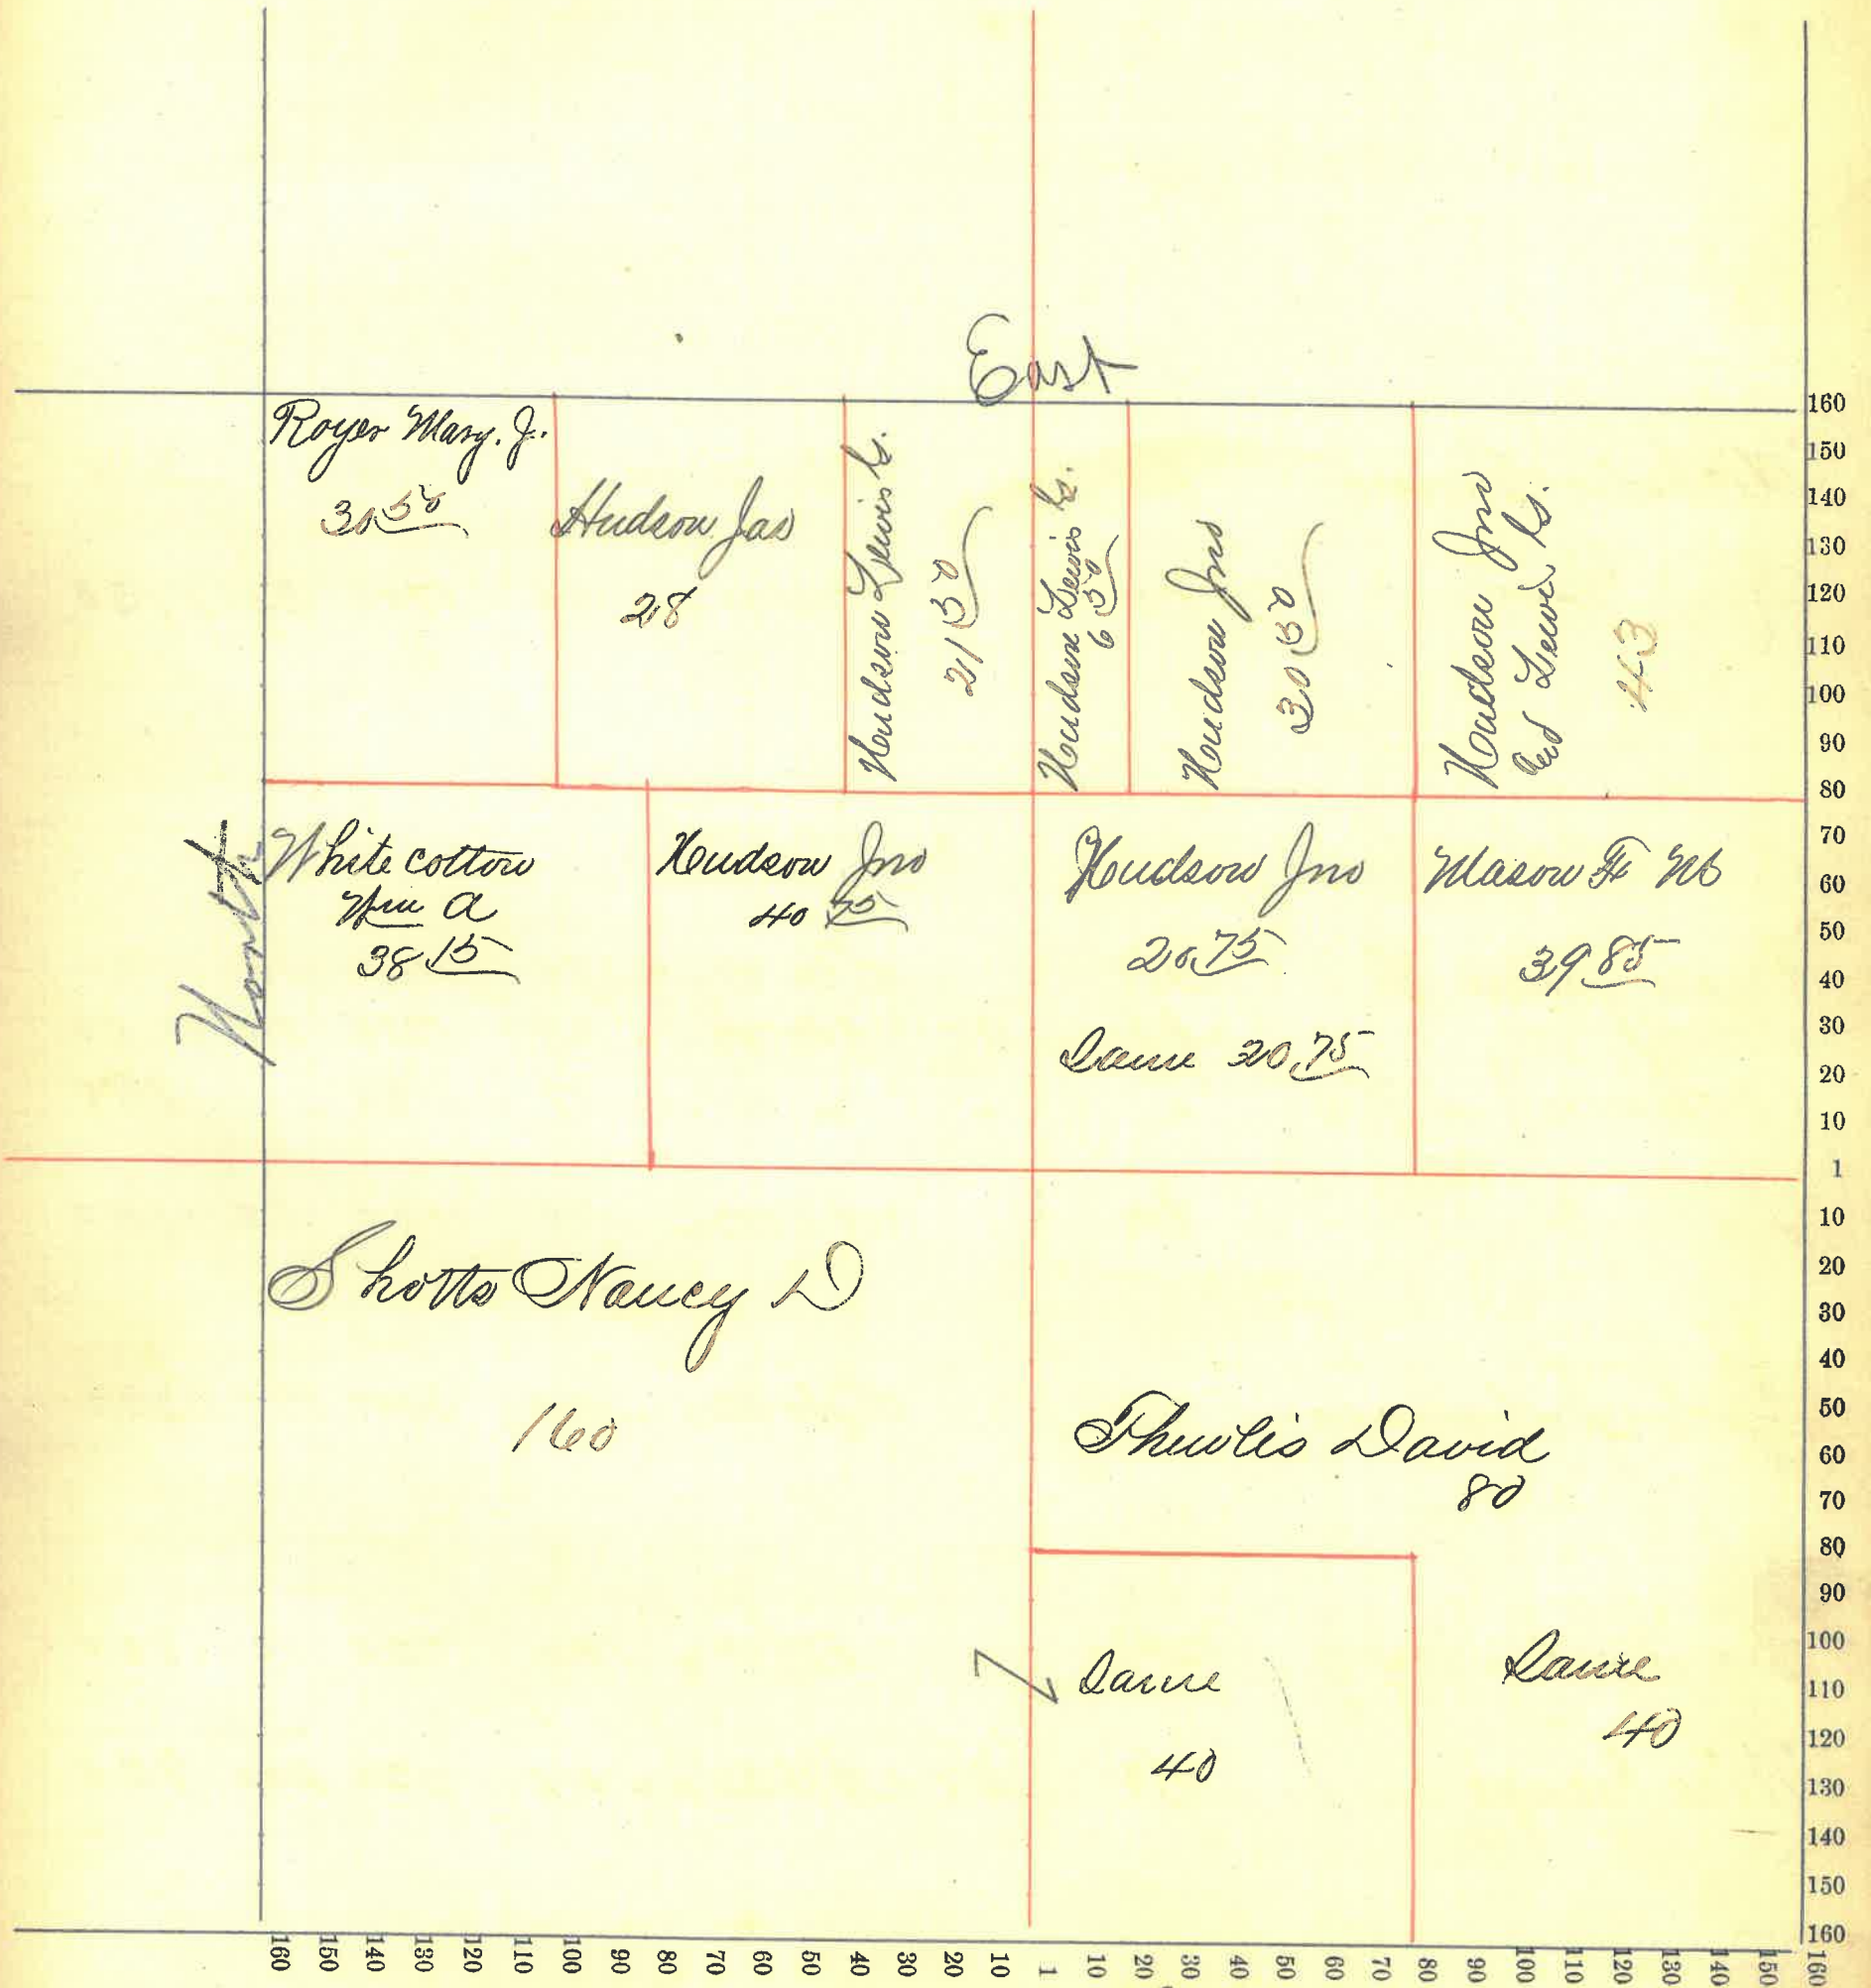 East
Royer Mary. J.
30 50
Hudson Jas
28
Hudson Lewis G.
21 50
Hudson Lewis G.
6 50
Hudson Jno
30 50
Hudson Jno
and Lewis G.
43
North
White cotton
Wm A
38 15
Hudson Jno
40 75
Hudson Jno
20 75
Same 20 75
Mason F M
39 85
Shotts Nancy D
160
Thewlis David
80
Same
40
Same
40
160
150
140
130
120
110
100
90
80
70
60
50
40
30
20
10
1
10
20
30
40
50
60
70
80
90
100
110
120
130
140
150
160
160 150 140 130 120 110 100 90 80 70 60 50 40 30 20 10 1 10 20 30 40 50 60 70 80 90 100 110 120 130 140 150 160